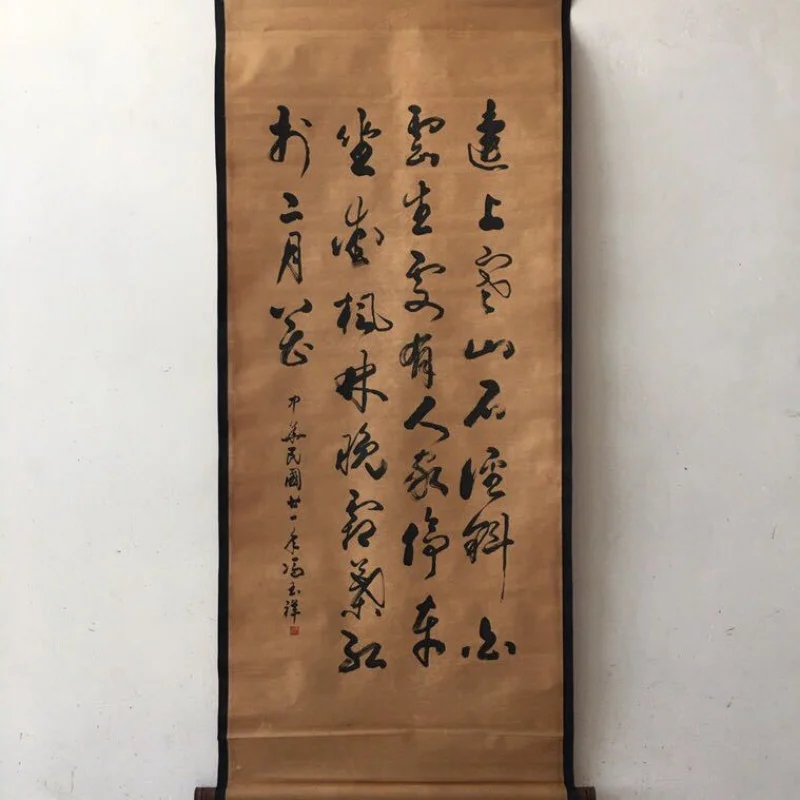 遠上寒山石徑斜白
雲生處有人家停車
坐愛楓林晚霜葉紅
於二月花
中華民國廿一年馮玉祥